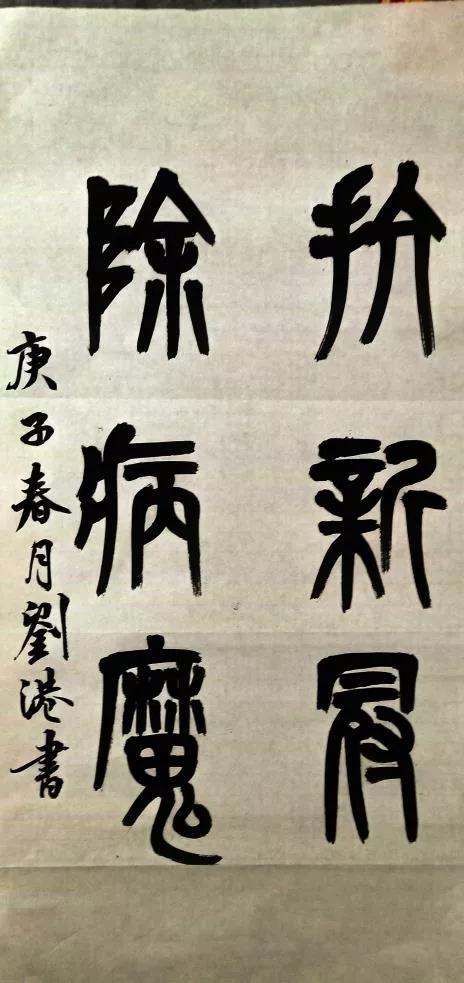 抗新冠
除病魔
庚子春月劉港書